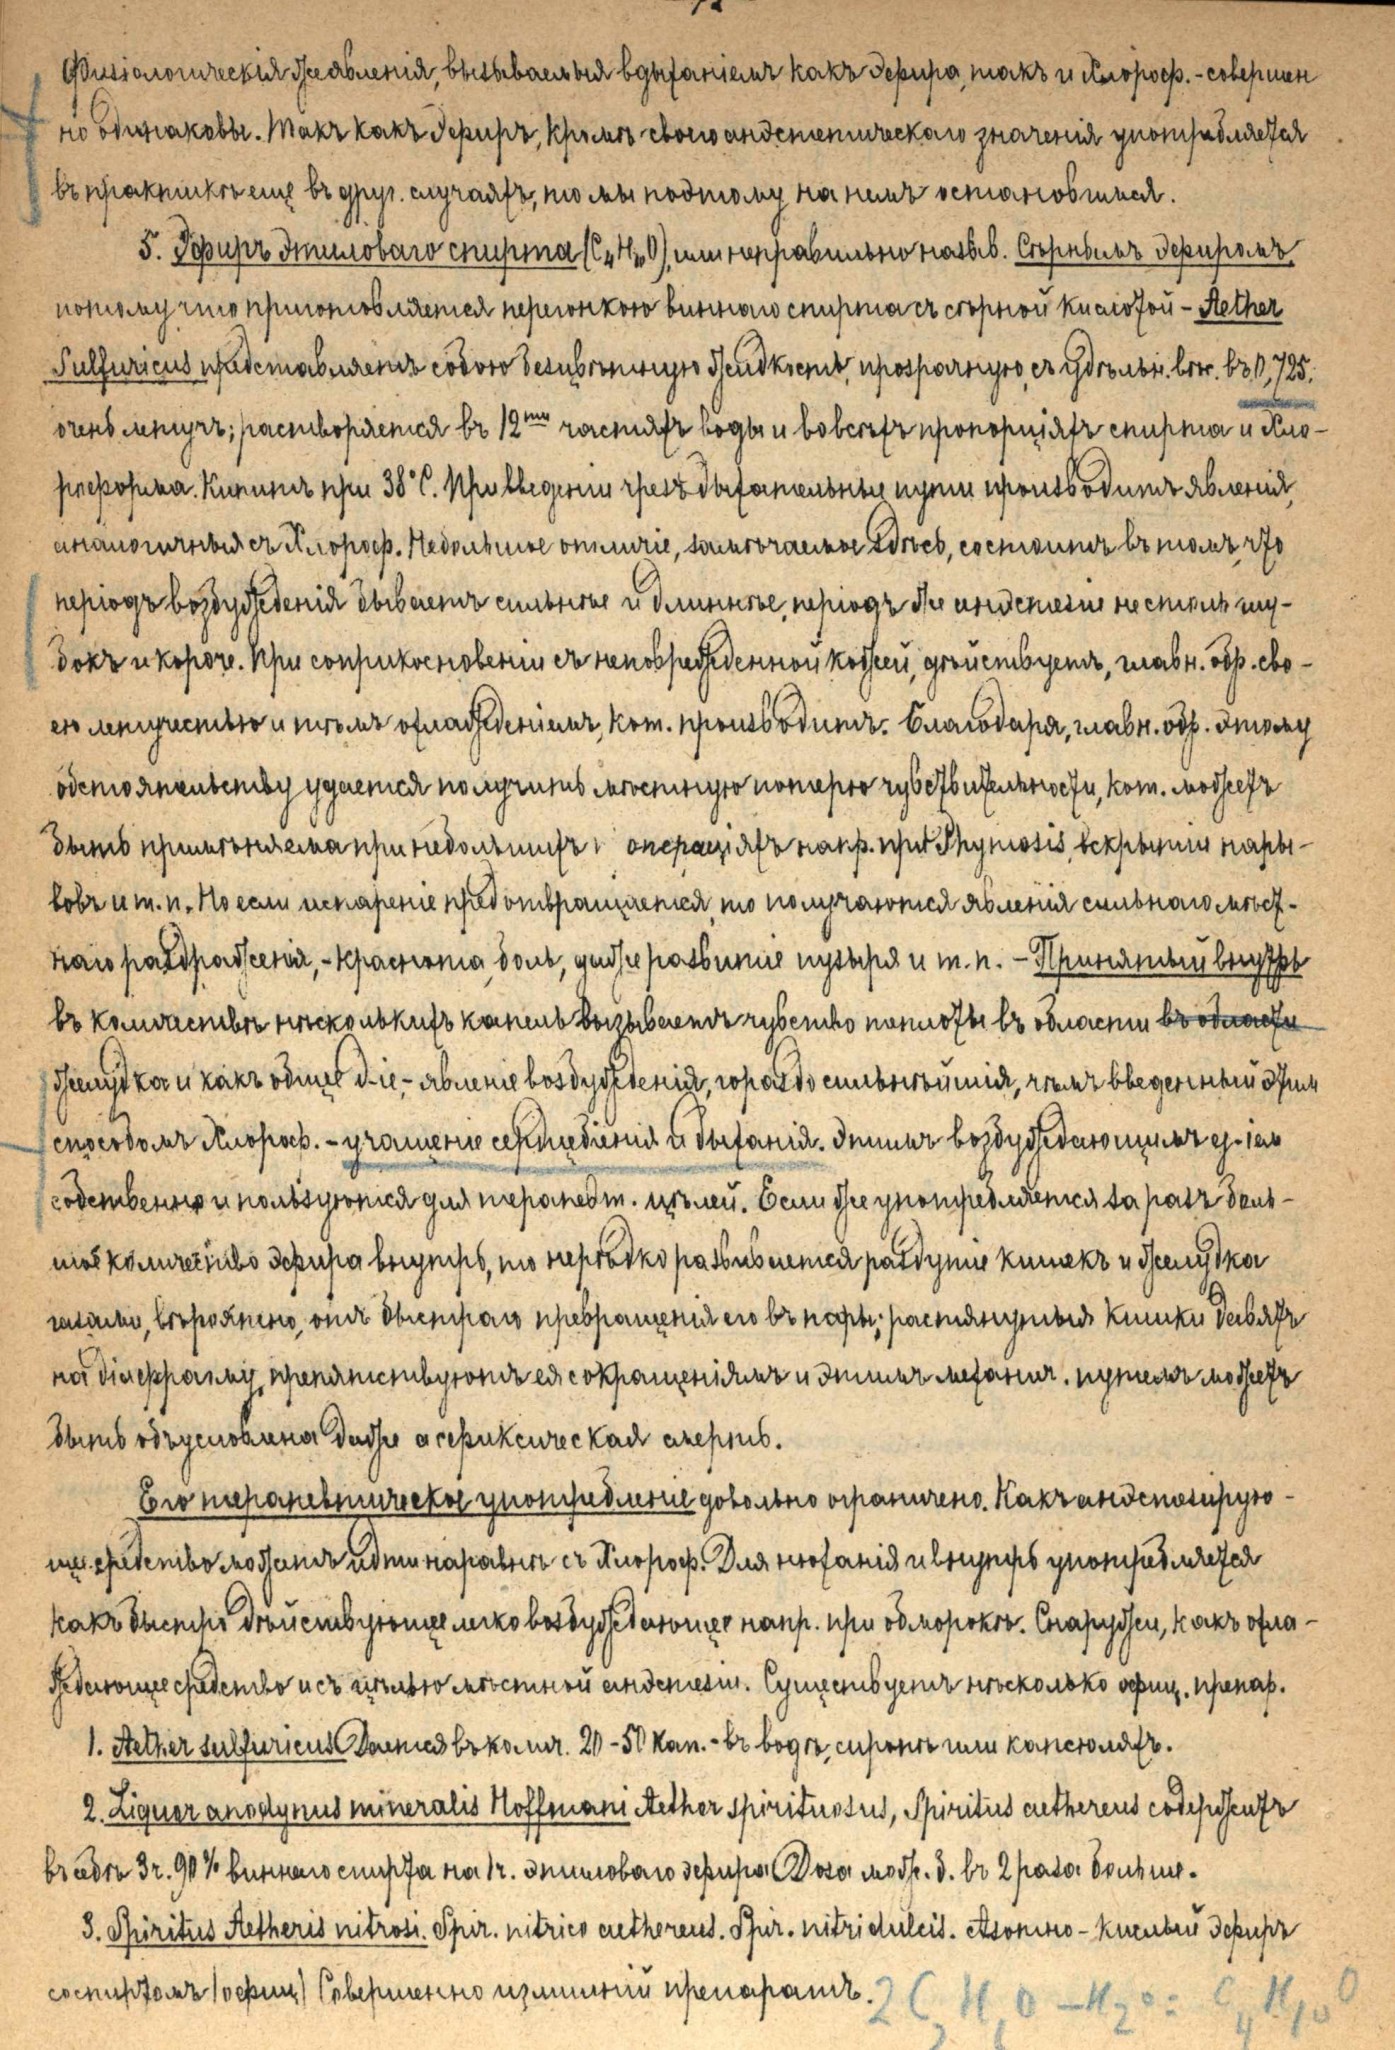 Физіологическія же явленія, вызываемыя вдыханіемъ какъ эфира, такъ и Хлороф. - совершен
но одинаковы. Такъ какъ Эфиръ, кромѣ своего анэстетическаго значенія употребляется
въ практикѣ еще въ друг. случаяхъ, то мы поэтому на немъ остановимся.
5. Эфиръ Этиловаго спирта (C₄H₁₀O), или неправильно назыв. Сѣрнымъ эфиромъ
потому что приготовляется перегонкою виннаго спирта съ сѣрной кислотой - Aether
Sulfuricus представляетъ собою безцвѣтную жидкость, прозрачную, съ удѣльн. вѣс. въ 0,725.
очень летучъ; растворяется въ 12ти частяхъ воды и во всѣхъ пропорціяхъ спирта и Хло-
роформа. Кипитъ при 38°C. При введеніи чрезъ дыхательные пути производитъ явленія,
аналогичныя съ Хлороф. Небольшое отличіе, замѣчаемое здѣсь, состоитъ въ томъ, что
періодъ возбужденія бываетъ сильнѣе и длиннѣе, періодъ же анэстезіи не столь глу-
бокъ и короче. При соприкосновеніи съ неповрежденной кожей, дѣйствуетъ, главн. обр. сво-
ею летучестью и тѣмъ охлажденіемъ, кот. производитъ. Благодаря, главн. обр. этому
обстоятельству удается получить мѣстную потерю чувствительности, кот. можетъ
быть примѣняема при небольшихъ операціяхъ напр. при Phymosis, вскрытіи нары-
вовъ и т.п. Но если испареніе предотвращается, то получаются явленія сильнаго мѣст-
наго раздраженія, - краснота, боль, даже развитіе пузыря и т.п. - Принятый внутрь
въ количествѣ нѣсколькихъ капель вызываетъ чувство теплоты въ области въ области
желудка и какъ общее д-іе, - явленіе возбужденія, гораздо сильнѣйшія, чѣмъ введенный этим
способомъ Хлороф. - учащеніе сердцебіенія и дыханія. Этимъ возбуждающимъ д-іем
собственно и пользуются для терапевт. цѣлей. Если же употребляется за разъ боль-
шое количество эфира внутрь, то нерѣдко развивается раздутіе кишекъ и желудка
газами, вѣроятно, отъ быстраго превращенія его въ пары; растянутыя кишки давятъ
на діафрагму, препятствуютъ ея сокращеніямъ и этимъ механич. путемъ можетъ
быть обусловлена даже асфиксическая смерть.
Его терапевтическое употребленіе довольно ограничено. Какъ анэстезирую-
щее средство можетъ идти наравнѣ съ Хлороф. Для нюханія и внутрь употребляется
какъ быстро дѣйствующее легко возбуждающее напр. при обморокѣ. Снаружи, какъ охла-
ждающее средство и съ цѣлью мѣстной анэстезіи. Существуетъ нѣсколько офиц. препар.
1. Aether sulfuricus Дается въ колич. 20 - 50 кап. - въ водѣ, сиропѣ или капсюляхъ.
2. Liquor anodynus mineralis Hoffmani Aether spirituosus, Spiritus aethereus содержитъ
въ себѣ 3 ч. 90% виннаго спирта на 1 ч. этиловаго эфира Доза мож. б. въ 2 раза больше.
3. Spiritus Aetheris nitrosi. Spir. nitrico aethereus. Spir. nitri dulcis. Азотно-кислый эфиръ
со спиртомъ (офиц) Совершенно излишній препаратъ.
2C₂H₆O - H₂O = C₄H₁₀O